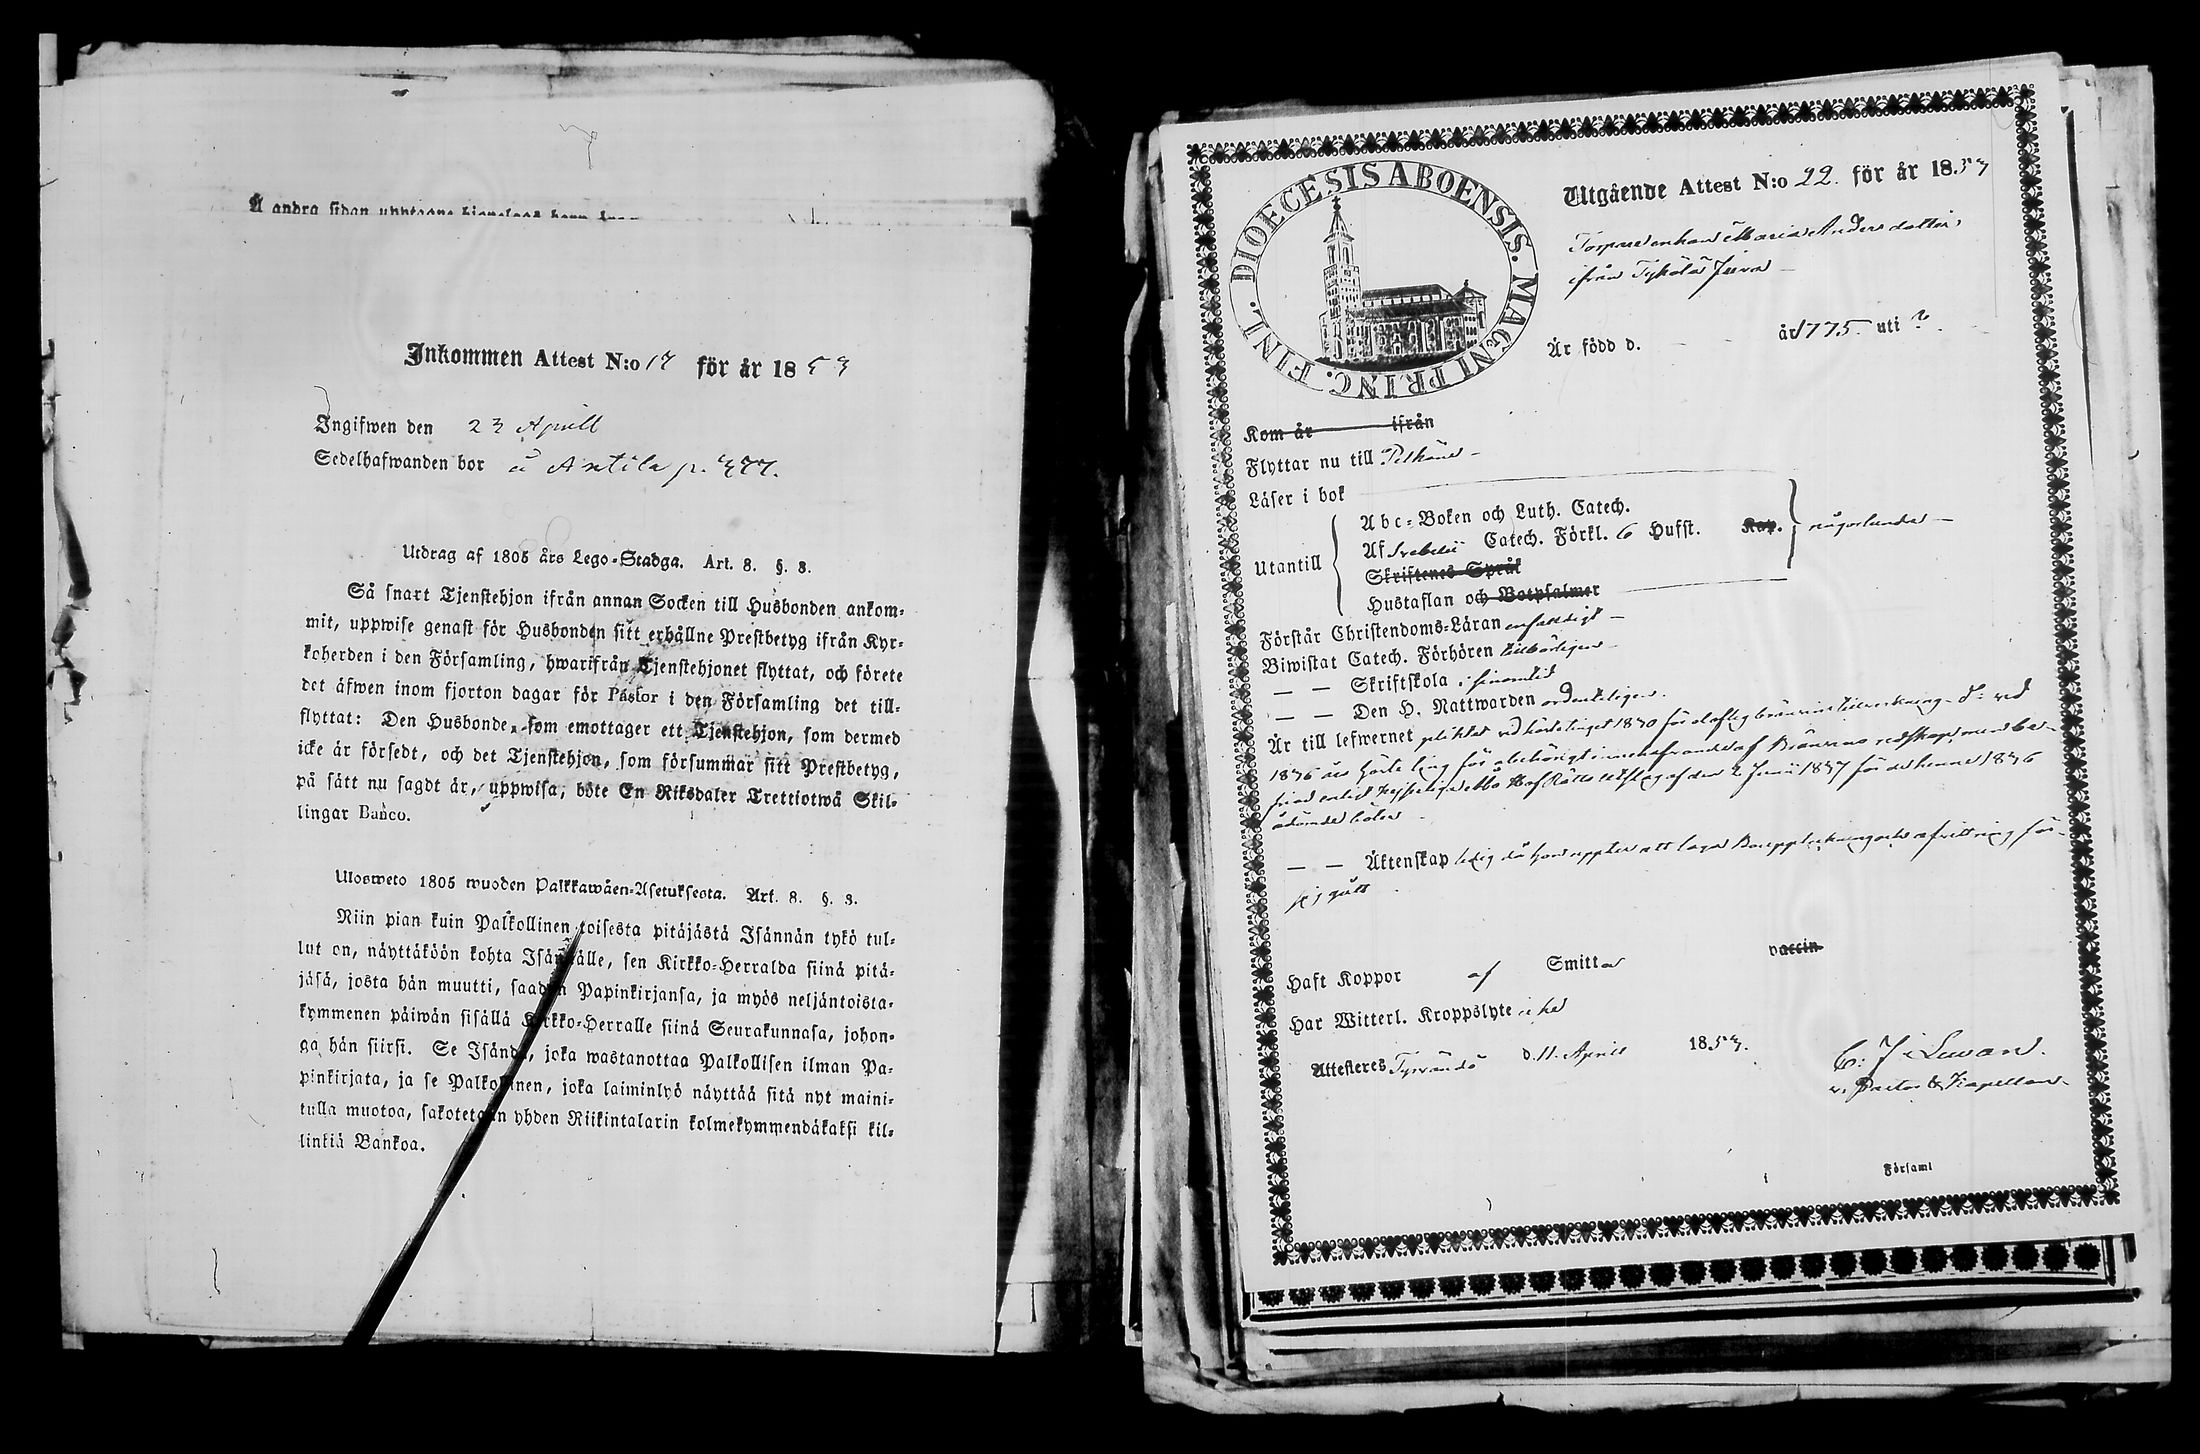 Å andra sidan upptagne
Inkommen Attest N:o 17 för år 1853
Ingifwen den 23 Aprill
Sedelhafwanden bor å Antila p. 377.
Utdrag af 1805 års Lego-Stadga. Art. 8. §. 8.
Så snart Tjenstehjon ifrån annan Socken till Husbonden ankom-
mit, uppwise genast för Husbonden sitt erhållne Prestbetyg ifrån Kyr-
koherden i den Församling, hwarifrån Tjenstehjonet flyttat, och förete
det äfwen inom fjorton dagar för Pastor i den Församling det till-
flyttat: Den Husbonde, som emottager ett Tjenstehjon, som dermed
icke är försedt, och det Tjenstehjon, som försummar sitt Prestbetyg,
på sätt nu sagdt är, uppwisa, böte En Riksdaler Trettiotwå Skil-
lingar Banco.
Ulosweto 1805 wuoden Palkkawäen-Asetuksesta. Art. 8. §. 8.
Niin pian kuin Palkollinen toisesta pitäjästä Isännän tykö tul-
lut on, näyttäköön kohta Isännälle, sen Kirkko-Herralda siinä pitä-
jäsä, josta hän muutti, saadun Papinkirjansa, ja myös neljäntoista-
kymmenen päiwän sisällä Kirkko-Herralle siinä Seurakunnasa, johon-
ga hän siirsi. Se Isändä, joka wastanottaa Palkollisen ilman Pa-
pinkirjata, ja se Palkollinen, joka laiminlyö näyttää sitä nyt maini-
tulla muotoa, sakotetaan yhden Riikintalarin kolmekymmendäkaksi kil-
linkiä Bankoa.
DIOECESIS ABOENSIS. MAGNI PRINC. FINL.
Utgående Attest N:o 22. för år 1853
Torpareenkan Maria Andersdotter
ifrån Tyhölä
Är född d. år 1775. uti ?
Kom år ifrån
Flyttar nu till Pelkäne
Läser i bok
Abc-Boken och Luth. Catech.
Utantill
Af Svebelii Catech. Förkl. 6 Hufst. Kap. någorlunda
Skriftenes Språk
Hustaflan och Botpsalmer
Förstår Christendoms-Läran enfaldigt
Biwistat Catech. Förhören tillbörligen
— — Skriftskola i sinom tid
— — Den H. Nattwarden ordenteligen.
Är till lefwernet pliktat vid häradstinget 1830 för olaflig bränvins tillverkning. d:o vid
1836 års höste ting för obehörigt innehafvande af Brännvins redskap, men be-
friad enligt Hof Rätts utslag af den 2 Junii 1837 för de henne 1836
ådömde böter
— — Äktenskap ledig då hon uppter att laga Bouppteckning och afvittring för
sig gått
Haft Koppor af Smittor vaccin
Har Witterl. Kroppslyte icke
Attesteres Tyrvändö d. 11. April 1853.
v. Pastor & Kapellan
Församl